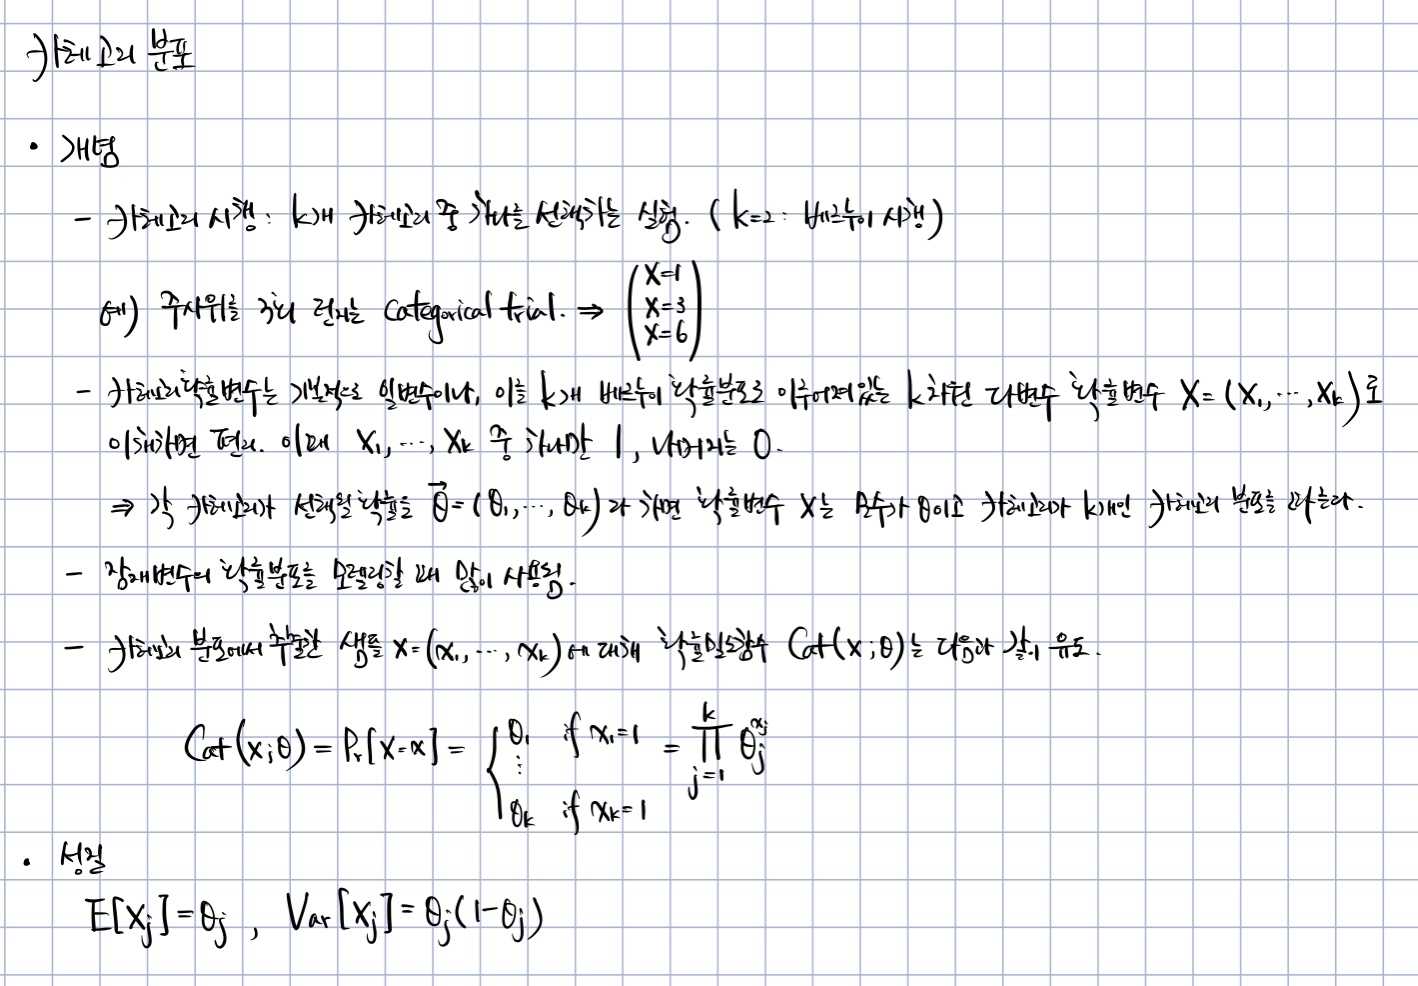 카테고리 분포
• 개념
- 카테고리 시행 : k개 카테고리 중 하나를 선택하는 실험. ( k=2 : 베르누이 시행 )
예) 주사위를 3번 던지는 categorical trial. ⇒ ( X=1 X=3 X=6 )
- 카테고리확률변수는 기본적으로 일변수이나, 이를 k개 베르누이 확률분포로 이루어져있는 k차원 다변수 확률변수 X = (X₁, ⋯, Xₖ)로
이해하면 편리. 이때 X₁, ⋯, Xₖ 중 하나만 1, 나머지는 0.
⇒ 각 카테고리가 선택될 확률을 θ⃗ = (θ₁, ⋯, θₖ)라 하면 확률변수 X는 모수가 θ이고 카테고리가 k개인 카테고리 분포를 따른다.
- 잠재변수의 확률분포를 모델링할 때 많이 사용됨.
- 카테고리 분포에서 추출한 샘플 x = (x₁, ⋯, xₖ)에 대해 확률밀도함수 Cat(x ; θ)는 다음과 같이 유도.
Cat(x ; θ) = Pr[X=x] = { θ₁ if x₁=1 ⋮ θₖ if xₖ=1 = ∏_{j=1}^{k} θⱼ^{xⱼ}
• 성질
E[Xⱼ] = θⱼ , Var[Xⱼ] = θⱼ(1-θⱼ)